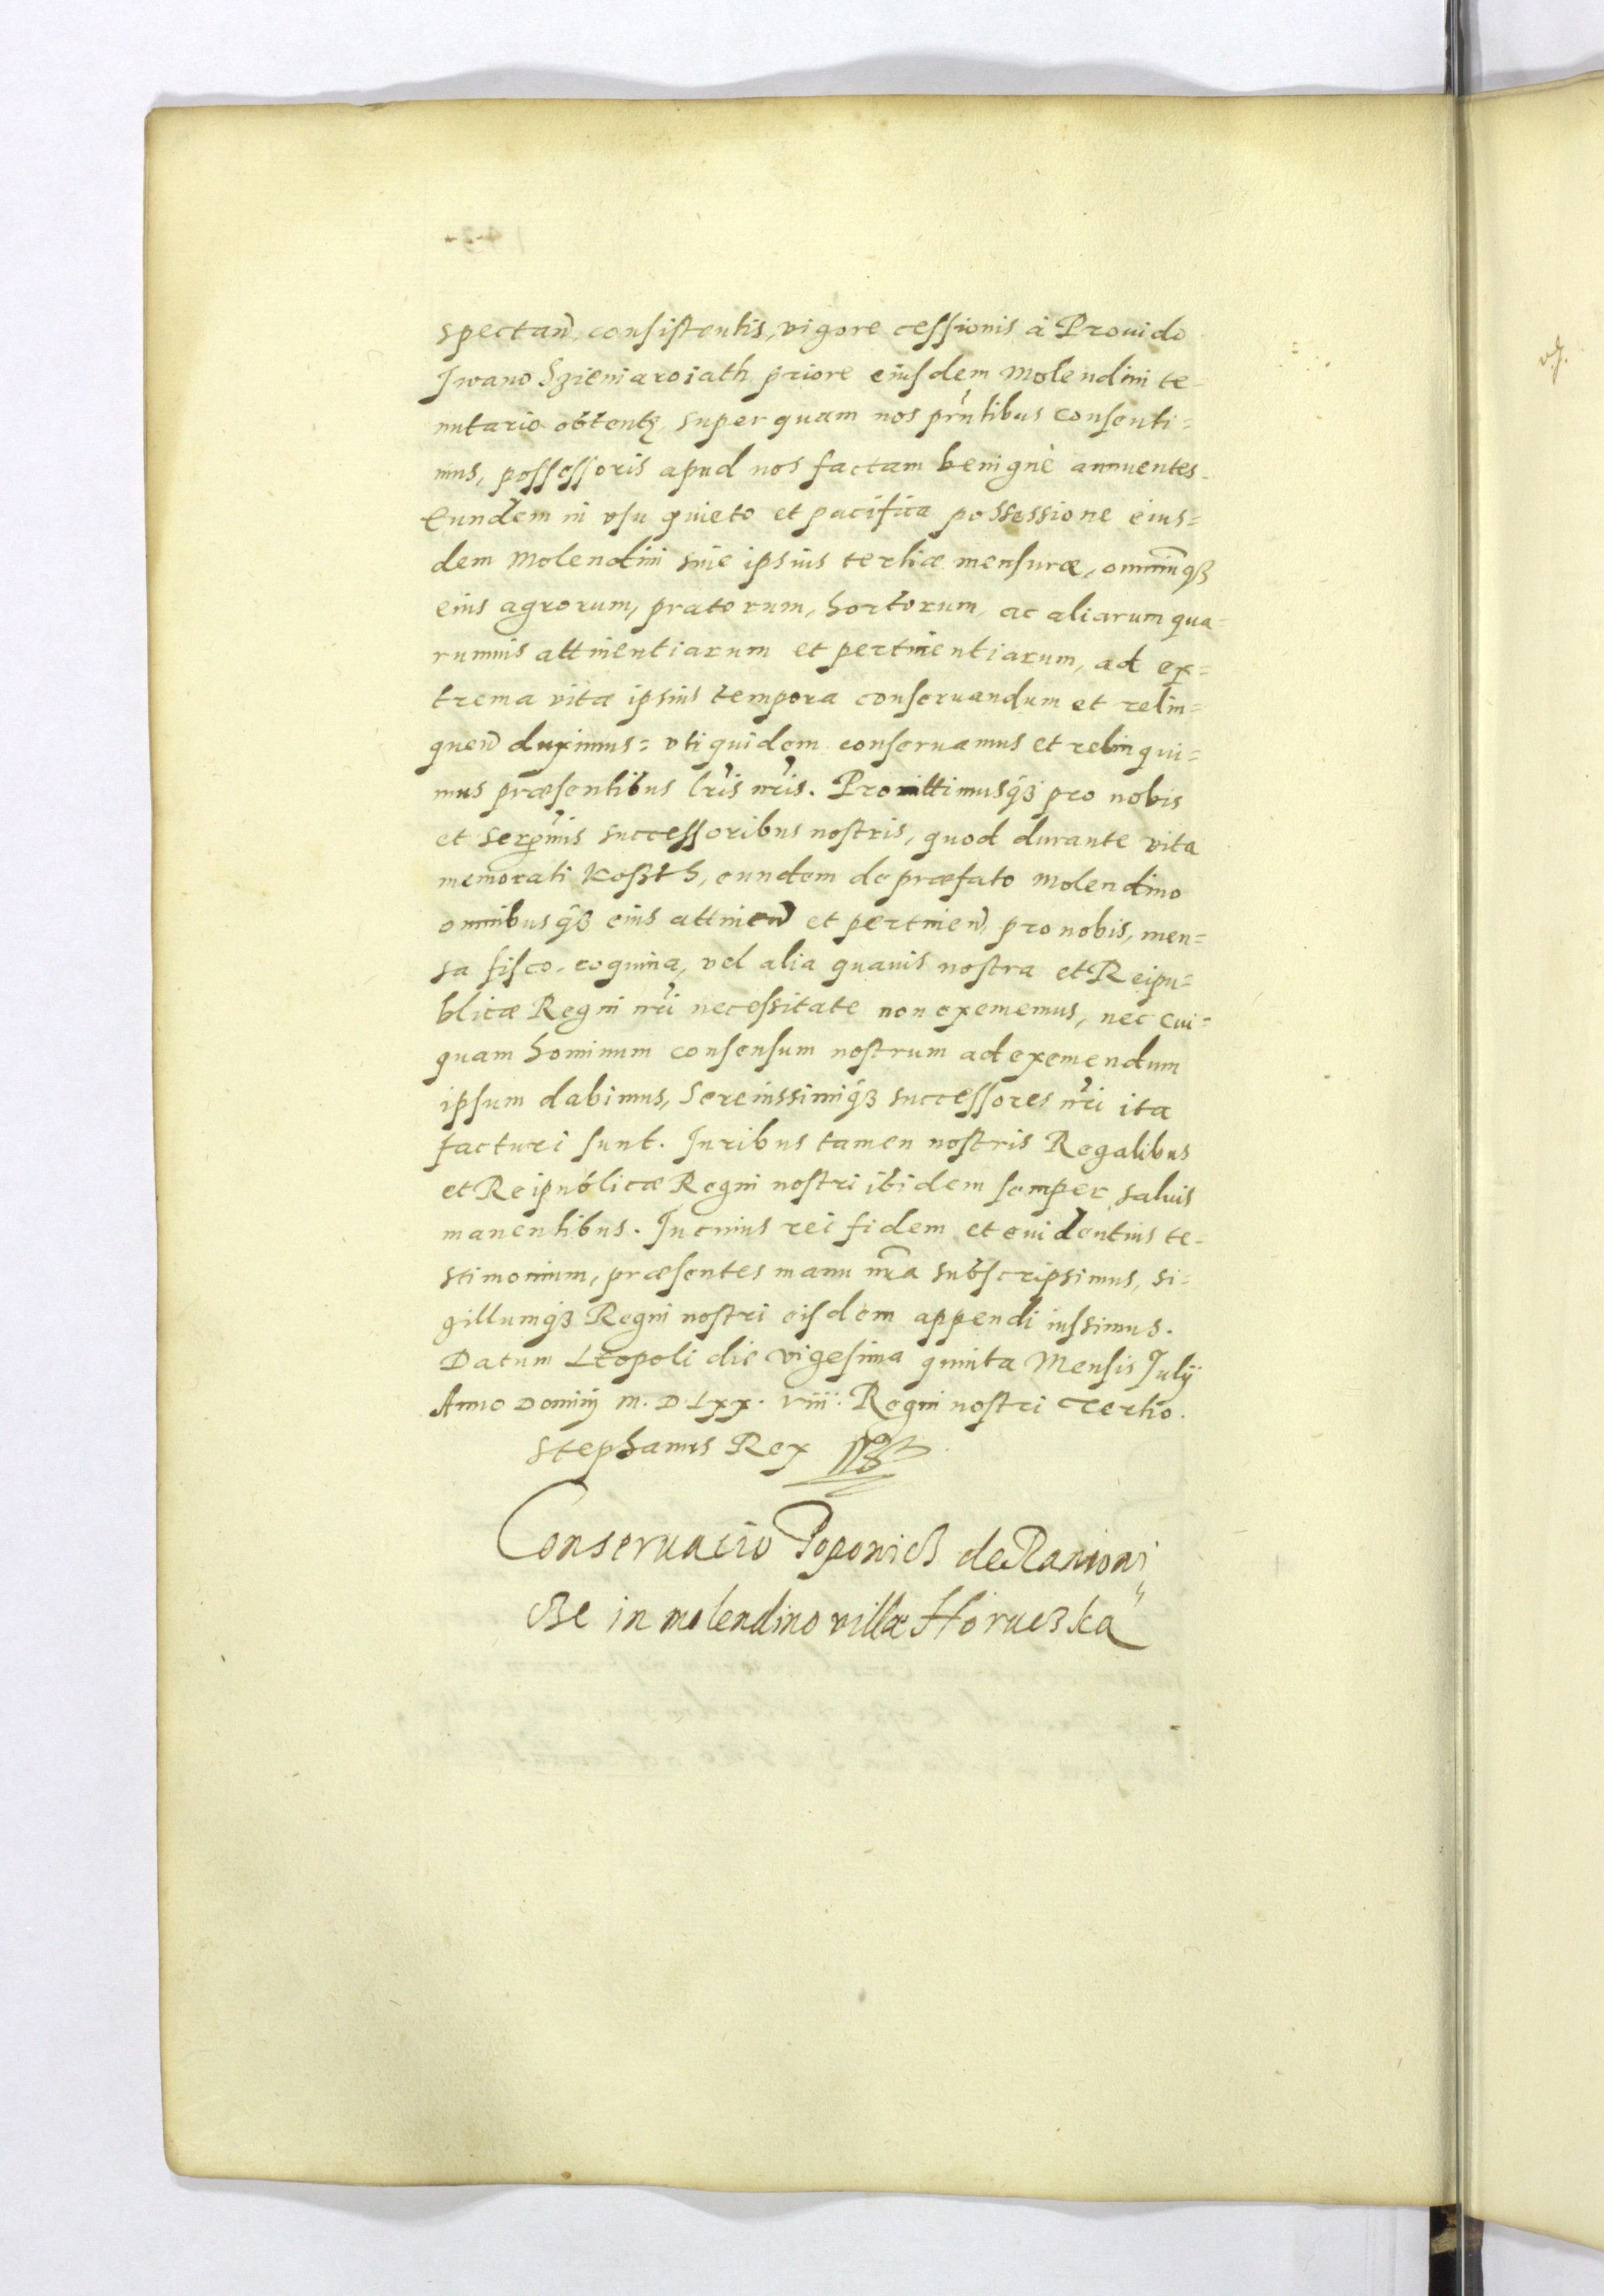 spectan̄, consistentis, vigore cessionis à Prouido
Jwano Szieniaroiath priore eiusdem molendini te-
nutario obtentę, super quam nos prn̄tibus consenti=
mus, possessoris apud nos factam benignè annuentes.
Eundem in vsu quieto et pacifica possessione eius=
dem molendini siue ipsius tertiæ mensuræ, omniūqȝ
eius agrorum, pratorum, hortorum, ac aliarum qua=
rumuis attinentiarum et pertinentiarum, ad ex=
trema vitæ ipsius tempora conseruandum et relin=
quen̄ duximus= vti quidem conseruamus et relinqui=
mus præsentibus lr̄is nr̄is. Promittimusqȝ pro nobis
et serp̄mis successoribus nostris, quod durante vita
memorati Koßth, eundem de præfato molendino
omnibusqȝ eius attinen̄ et pertinen̄, pro nobis, men=
sa fisco, coquina, vel alia quauis nostra et Reipu=
blicæ Regni nr̄i necessitate non exememus, nec cui=
quam hominum consensum nostrum ad exemendum
ipsum dabimus, Sereinssimiqȝ successores nr̄i ita
facturi sunt. Juribus tamen nostris Regalibus
et Reipublicæ Regni nostri ibidem semper saluis
manentibus. In cuius rei fidem et euidentius te-
stimonium, præsentes manu nr̄a subscripsimus, si=
gillumqȝ Regni nostri eisdem appendi iussimus.
Datum Leopoli die vigesima quinta Mensis Julÿ
Anno Dominj M. D. Lxx. viii: Regni nostri Tertio.
Stephanus Rex
Conseruacio Popowich de
in molendino villæ